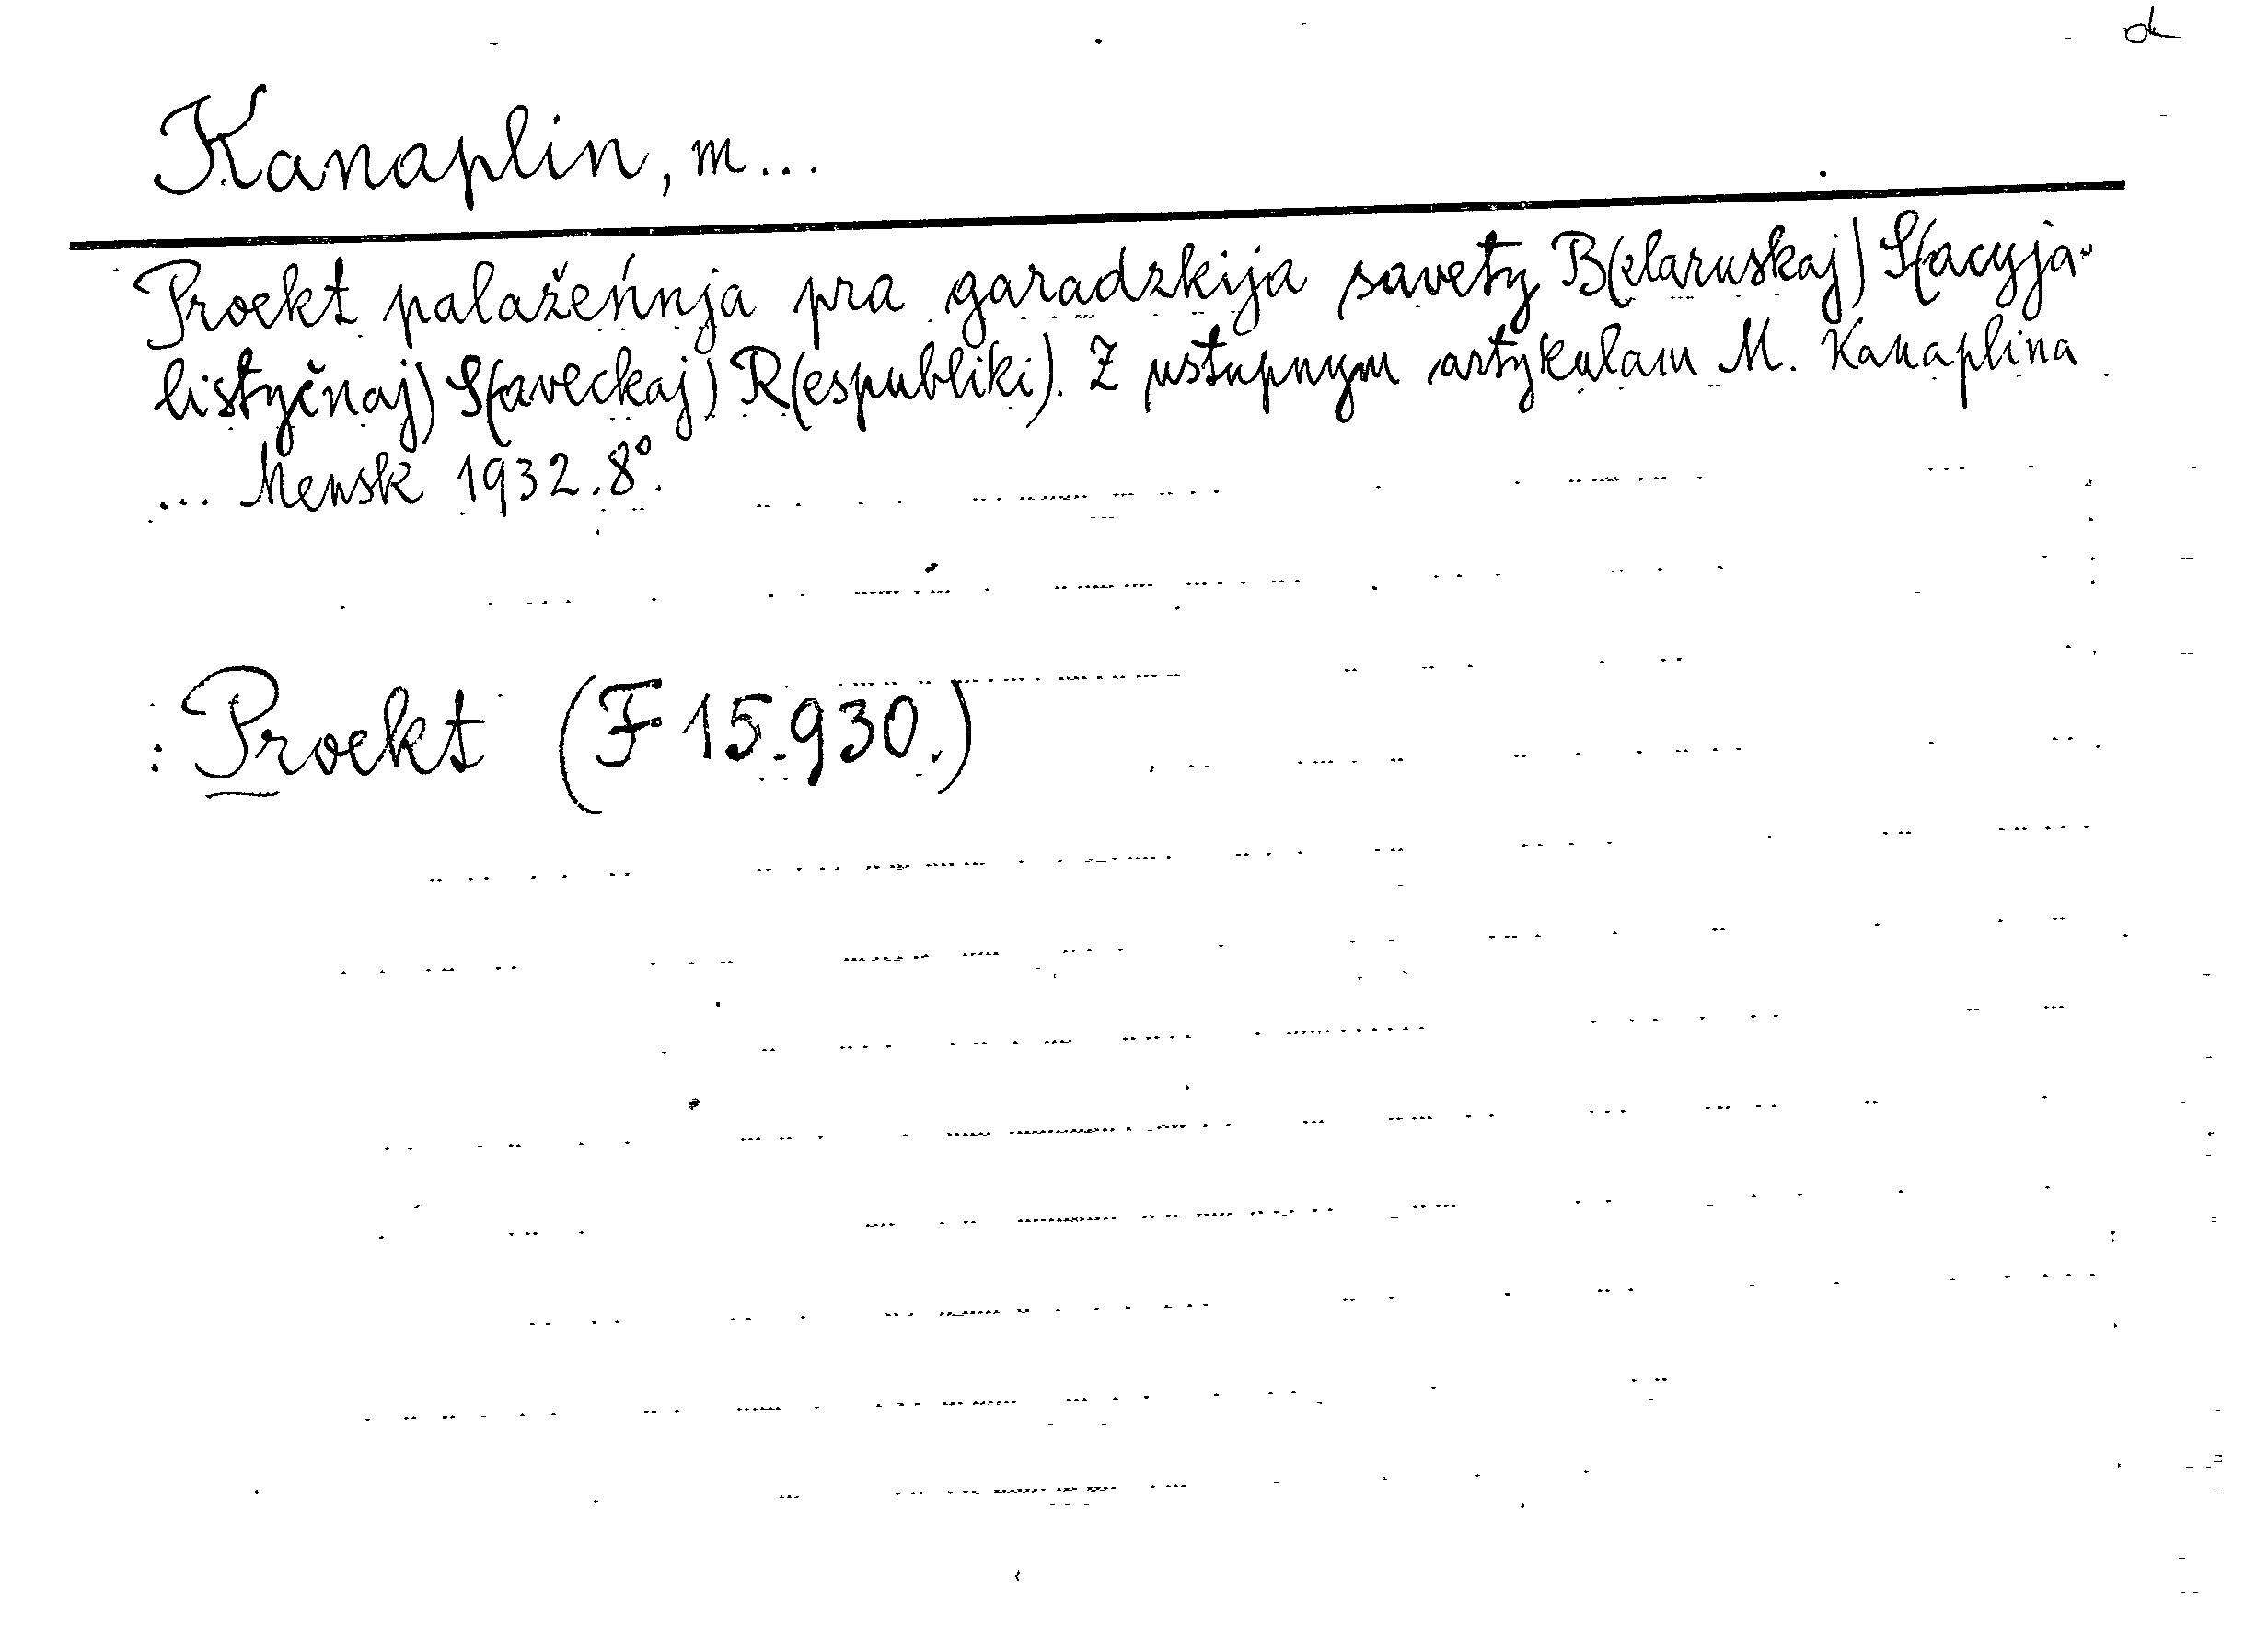 Kanaplin, M...
Proekt palažeńnja pra garadzkija savety B(elaruskaj) S(acyja-
listyčnaj) S(aveckaj) R(espubliki). Z ustupnym artykulam M. Kanaplina
... Mensk 1932. 8°.
: Proekt (F 15.930.)